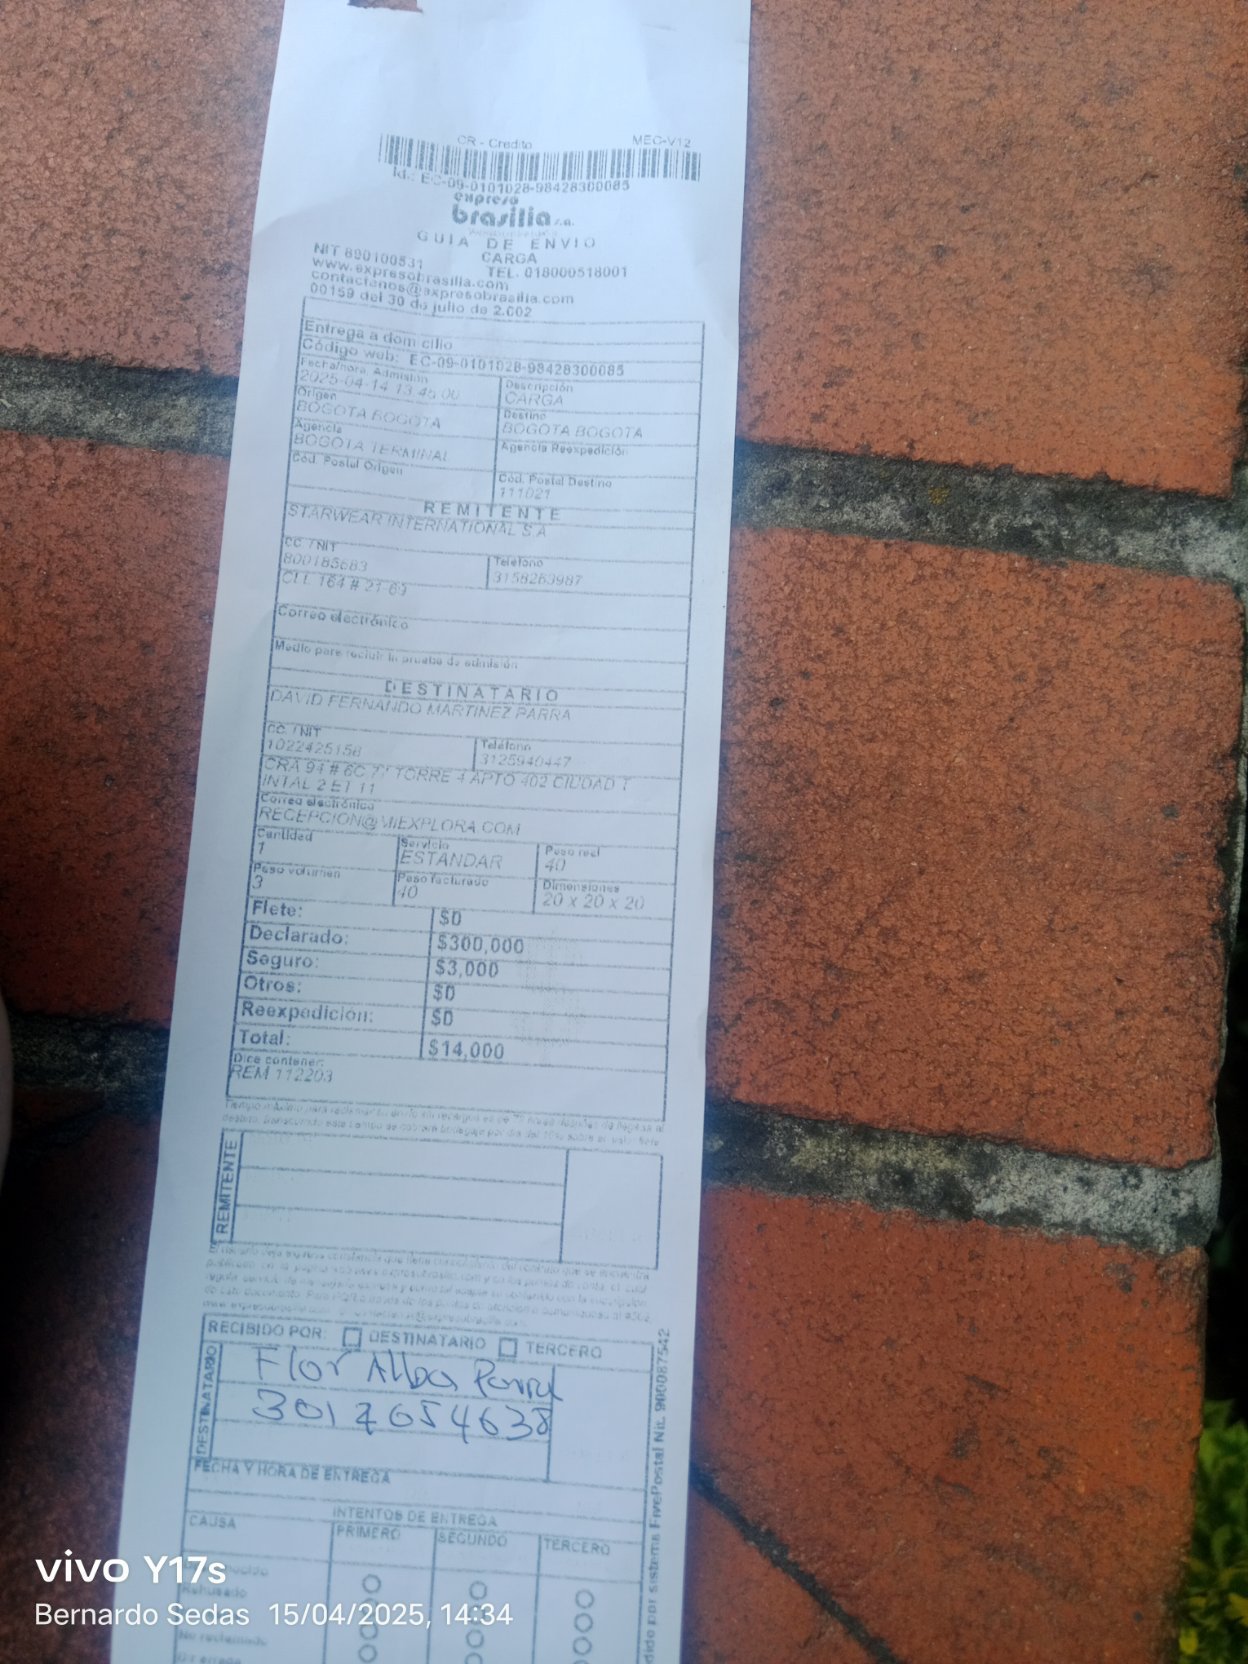 CR - Credito MEC-V12
Id.: EC-09-0101028-98428300085
expreso
brasilia s.a.
GUIA DE ENVIO
CARGA
NIT 890100531 TEL. 018000518001
www.expresobrasilia.com
contactenos@expresobrasilia.com
00159 del 30 de julio de 2.002
Entrega a domicilio
Código web: EC-09-0101028-98428300085
Fecha/hora Admisión Descripción
2025-04-14 13:45:00 CARGA
Origen Destino
BOGOTA BOGOTA BOGOTA BOGOTA
Agencia Agencia Reexpedición
BOGOTA TERMINAL
Cód. Postal Origen Cód. Postal Destino
111021
REMITENTE
STARWEAR INTERNATIONAL S.A
CC / NIT Teléfono
800185683 3158263987
CLL 164 # 21 69
Correo electrónico
Medio para recibir la prueba de admisión
DESTINATARIO
DAVID FERNANDO MARTINEZ PARRA
CC / NIT Teléfono
1022425158 3125940447
CRA 94 # 6C TORRE 4 APTO 402 CIUDAD T
INTAL 2 ET 11
Correo electrónico
RECEPCION@MIEXPLORA.COM
Cantidad Servicio Peso real
1 ESTANDAR 40
Peso volumen Peso facturado Dimensiones
3 40 20 x 20 x 20
Flete: $0
Declarado: $300,000
Seguro: $3,000
Otros: $0
Reexpedición: $0
Total: $14,000
Dice contener:
REM 112203
REMITENTE
RECIBIDO POR: DESTINATARIO TERCERO
DESTINATARIO
Flor Alba Parra
3017654638
FECHA Y HORA DE ENTREGA
INTENTOS DE ENTREGA
CAUSA PRIMERO SEGUNDO TERCERO
Rehusado
No reclamado
Dir errada
dido por sistema FivePostal Nit. 900087542
vivo Y17s
Bernardo Sedas 15/04/2025, 14:34